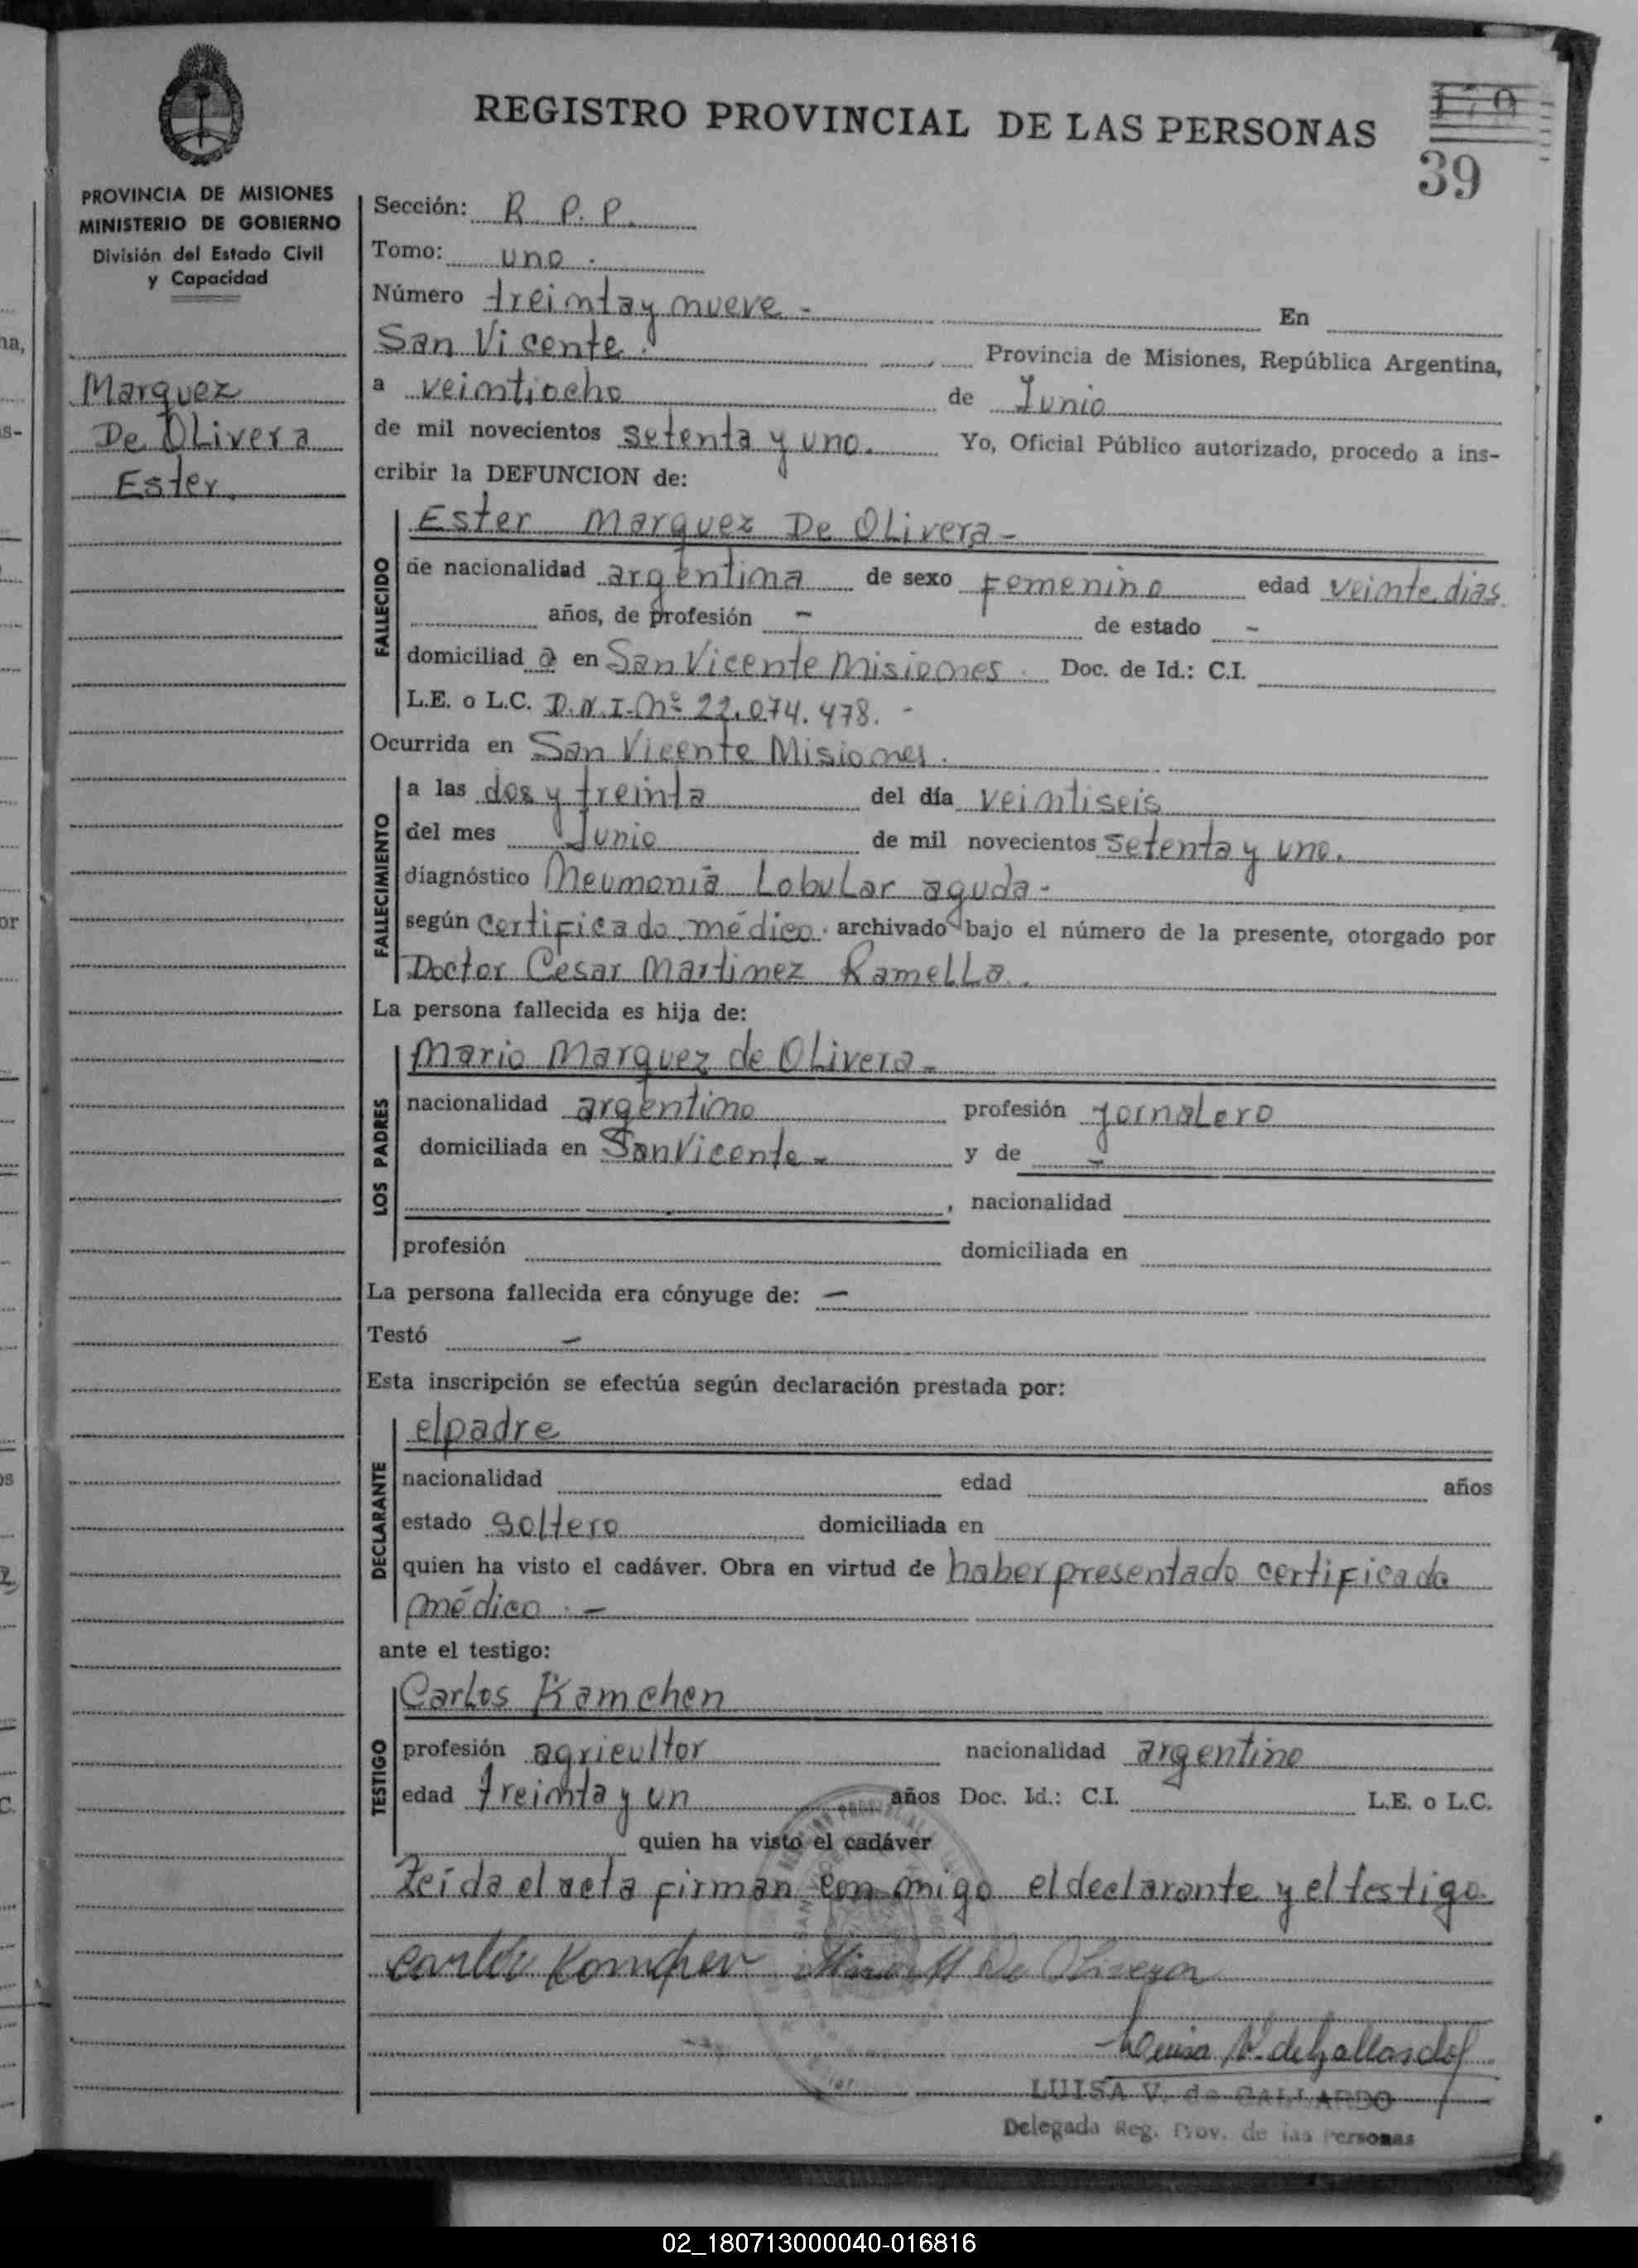 170
39
REGISTRO PROVINCIAL DE LAS PERSONAS
PROVINCIA DE MISIONES
MINISTERIO DE GOBIERNO
División del Estado Civil
y Capacidad
Marquez
De Olivera
Ester.
Sección: R. P. P.
Tomo: uno.
Número treinta y nueve - En
San Vicente. Provincia de Misiones, República Argentina,
a veintiocho de Junio
de mil novecientos setenta y uno. Yo, Oficial Público autorizado, procedo a ins-
cribir la DEFUNCION de:
FALLECIDO
Ester Marquez De Olivera -
de nacionalidad argentina de sexo femenino edad veinte dias
años, de profesión - de estado -
domiciliad a en San Vicente Misiones. Doc. de Id.: C.I.
L.E. o L.C. D.N.I. Nº 22.074.478. -
Ocurrida en San Vicente Misiones.
FALLECIMIENTO
a las dos y treinta del día veintiseis
del mes Junio de mil novecientos setenta y uno.
diagnóstico Neumonia Lobular aguda -
según certificado médico. archivado bajo el número de la presente, otorgado por
Doctor Cesar Martinez Ramella.
La persona fallecida es hija de:
LOS PADRES
Mario Marquez de Olivera -
nacionalidad argentino profesión jornalero
domiciliada en San Vicente - y de -
, nacionalidad
profesión domiciliada en
La persona fallecida era cónyuge de: -
Testó -
Esta inscripción se efectúa según declaración prestada por:
DECLARANTE
el padre
nacionalidad edad años
estado soltero domiciliada en
quien ha visto el cadáver. Obra en virtud de haber presentado certificado
médico. -
ante el testigo:
TESTIGO
Carlos Kamchen
profesión agricultor nacionalidad argentino
edad treinta y un años Doc. Id.: C.I. L.E. o L.C.
quien ha visto el cadáver
Leída el acta firman conmigo el declarante y el testigo.
Carlos Komchen M De Olivera
Luisa V. de Gallardo
LUISA V. de GALLARDO
Delegada Reg. Prov. de las Personas
02_180713000040-016816